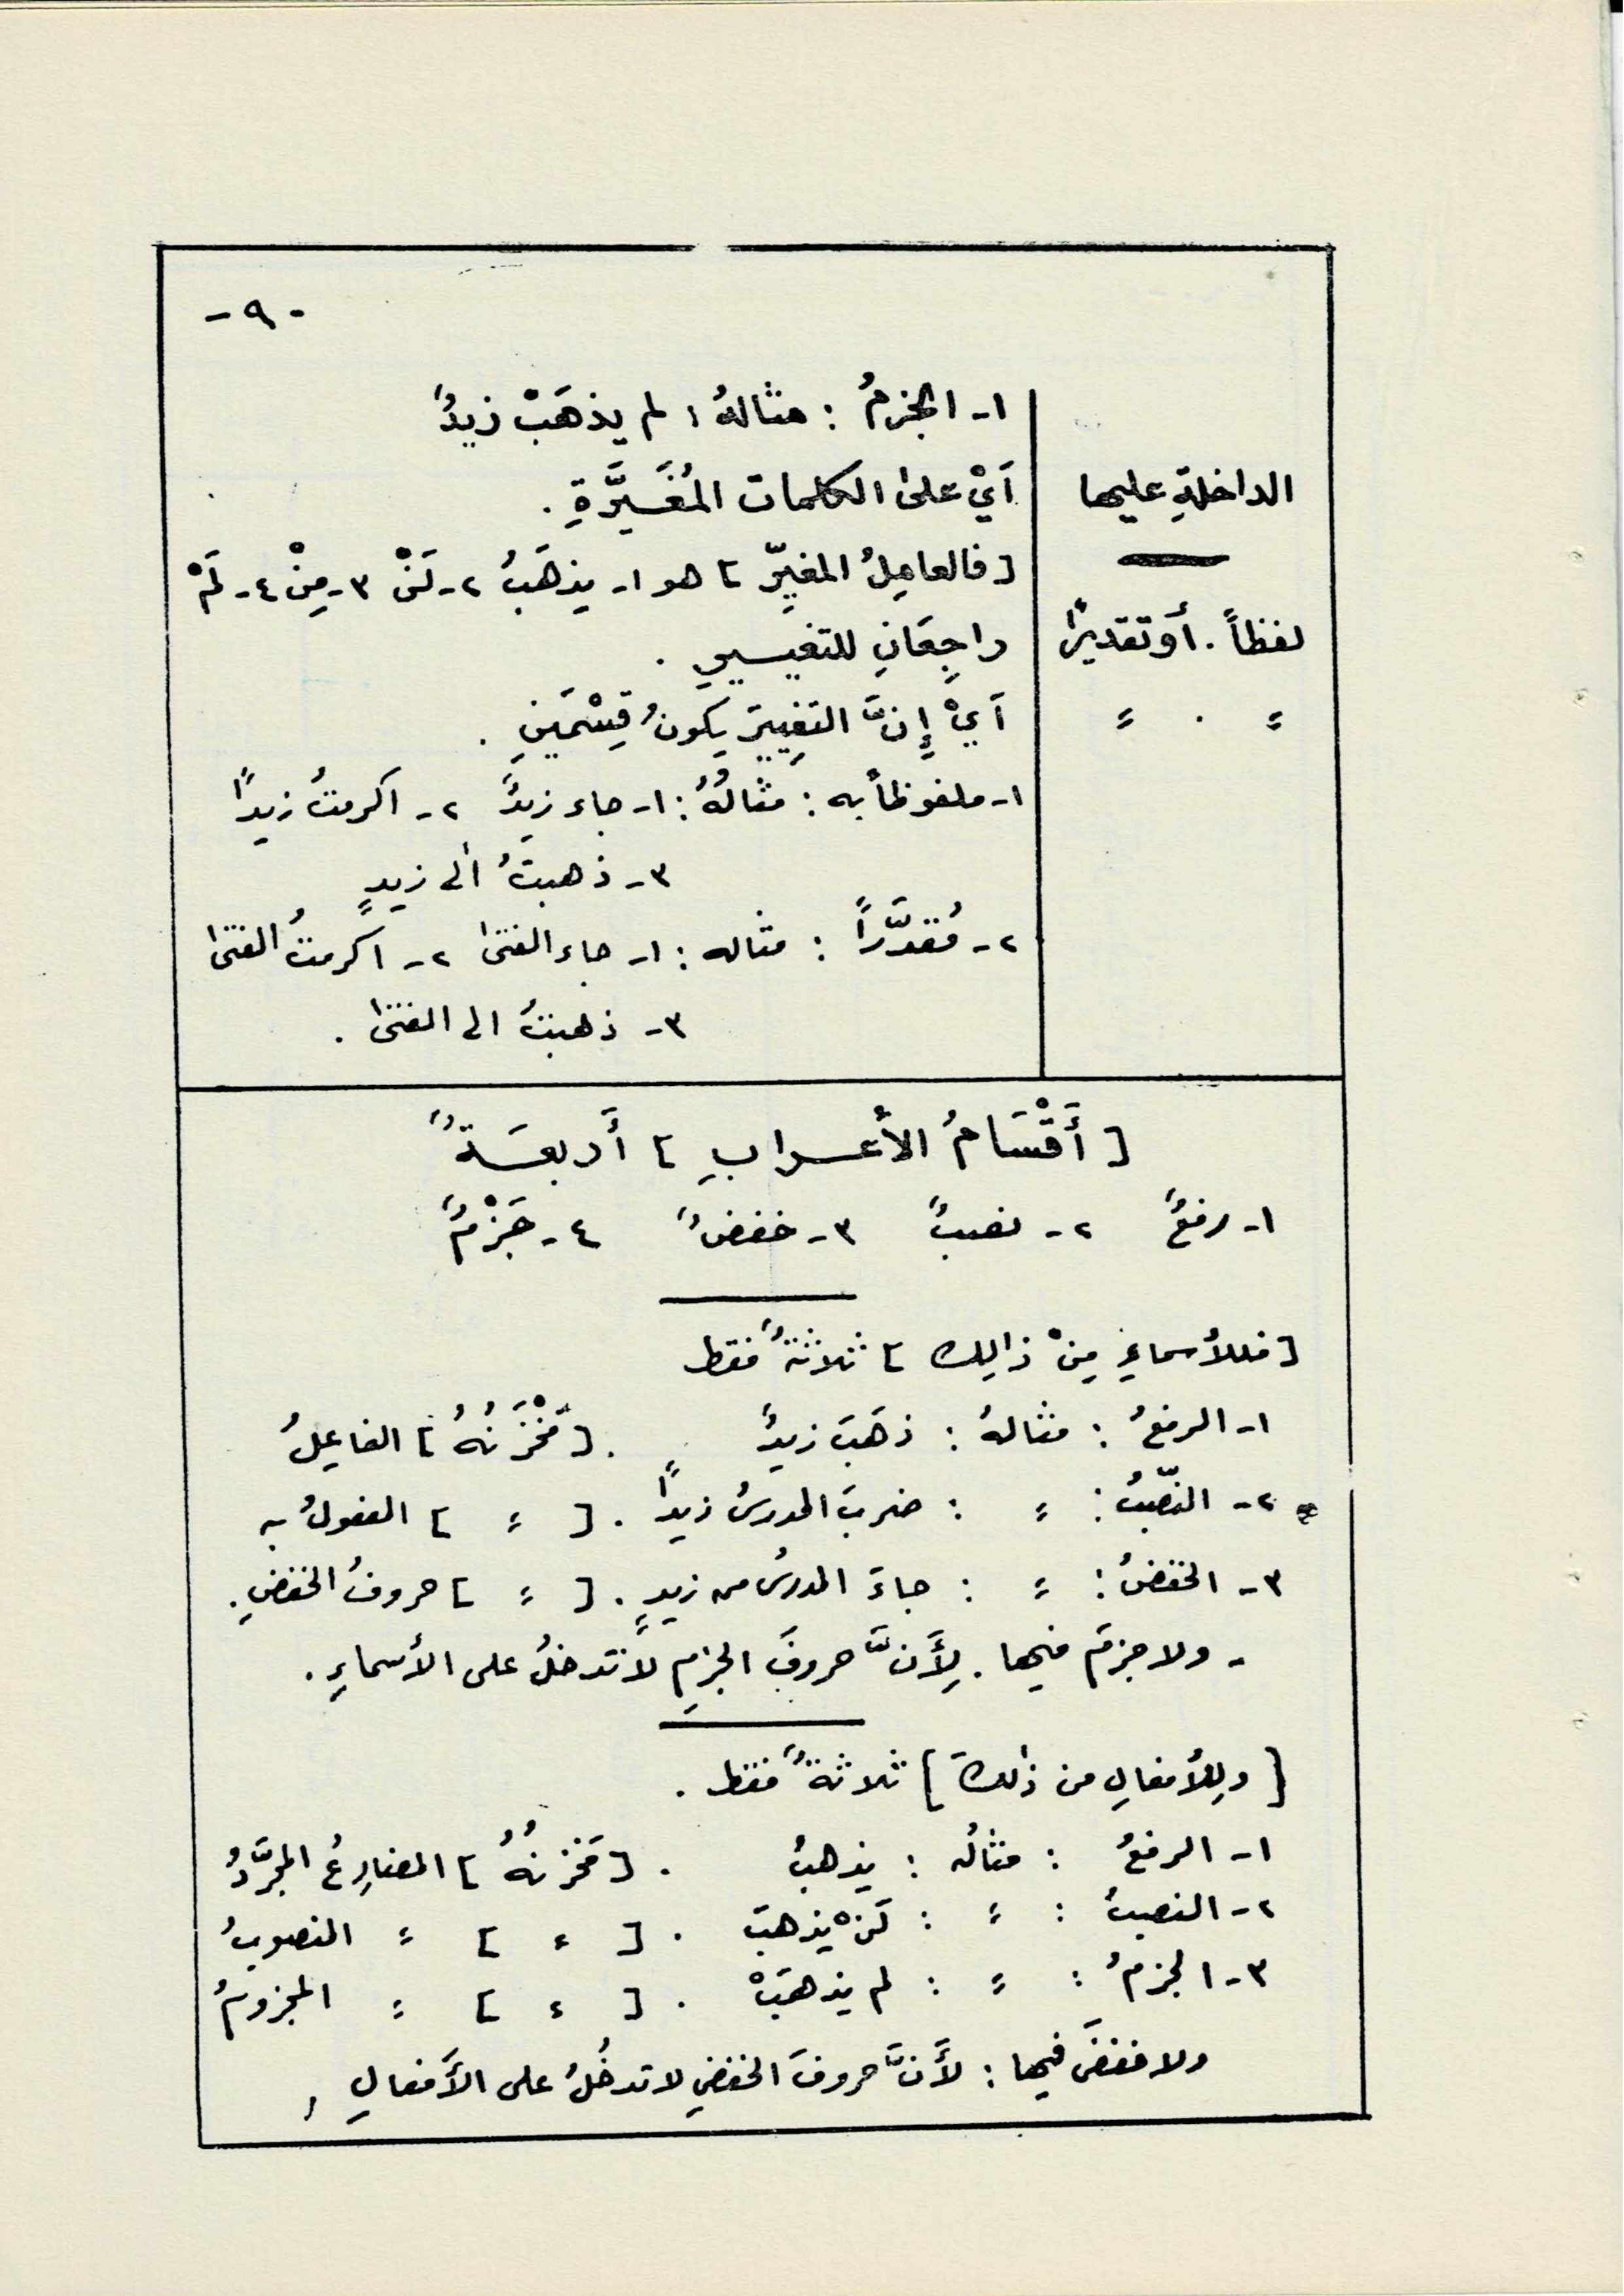 - ٩ -
١- الجزمُ : مثالهُ : لم يذهَبْ زيدٌ
الداخلةِ عليها | أَيْ على الكلمات المُغَيَّرَةِ .
[ فالعامِلُ المغيِّر ] هو ١- يذهَبُ ٢- لَنْ ٣- مِنْ ٤- لَمْ
لفظاً . أَو تقديرًا | راجِعَانِ للتغييرِ .
〃 . 〃 | أَيْ إِنَّ التغييرَ يكونُ قِسْمَينِ .
١- ملفوظاً به : مثالُهُ : ١- جاء زيدٌ ٢- اكرمتُ زيدًا
٣- ذهبتُ الى زيدٍ
٢- مُقدَّراً : مثاله : ١- جاء الفتىٰ ٢- اكرمتُ الفتىٰ
٣- ذهبتُ الى الفتىٰ .
[ أَقْسَامُ الأعرابِ ] أَربعَةٌ
١- رفعٌ ٢- نصبٌ ٣- خفضٌ ٤- جَزْمٌ
[ فللأسماءِ مِنْ ذالِك ] ثلاثةٌ فقط
١- الرفعُ : مثالهُ : ذهَبَ زيدٌ . [ مَخْزَنُهُ ] الفاعِلُ
٢- النّصبُ : 〃 : ضربَ المدرسُ زيدًا . [ 〃 ] المفعولُ به
٣- الخفضُ : 〃 : جاءَ المدرسُ من زيدٍ . [ 〃 ] حروفُ الخفضِ .
- ولا جزمَ فيها . لِأَنَّ حروفَ الجزمِ لا تدخلُ على الأسماءِ .
[ ولِلأفعالِ من ذٰلكَ ] ثلاثةٌ فقط .
١- الرفعُ : مثالُه : يذهبُ . [ مَخزنُهُ ] المضارِعُ المجرَّدُ
٢- النصبُ : 〃 : لَنْ يذهبَ . [ 〃 ] 〃 المنصوبُ
٣- الجزمُ : 〃 : لم يذهَبْ . [ 〃 ] 〃 المجزومُ
ولا خفضَ فيها : لأَنَّ حروفَ الخفضِ لا تدخُلُ على الأَفعالِ ,